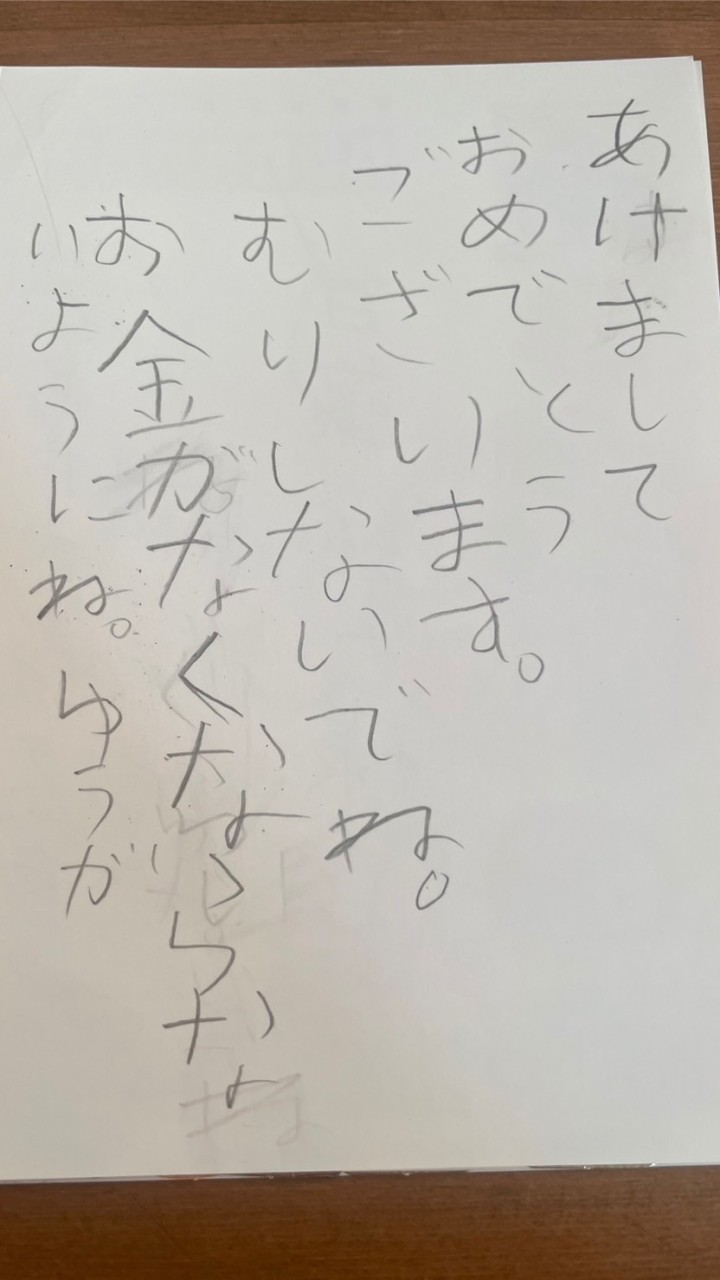 あけまして
おめでとう
ございます。
むりしないでね。
お金がなくならな
いようにね。ゆうが